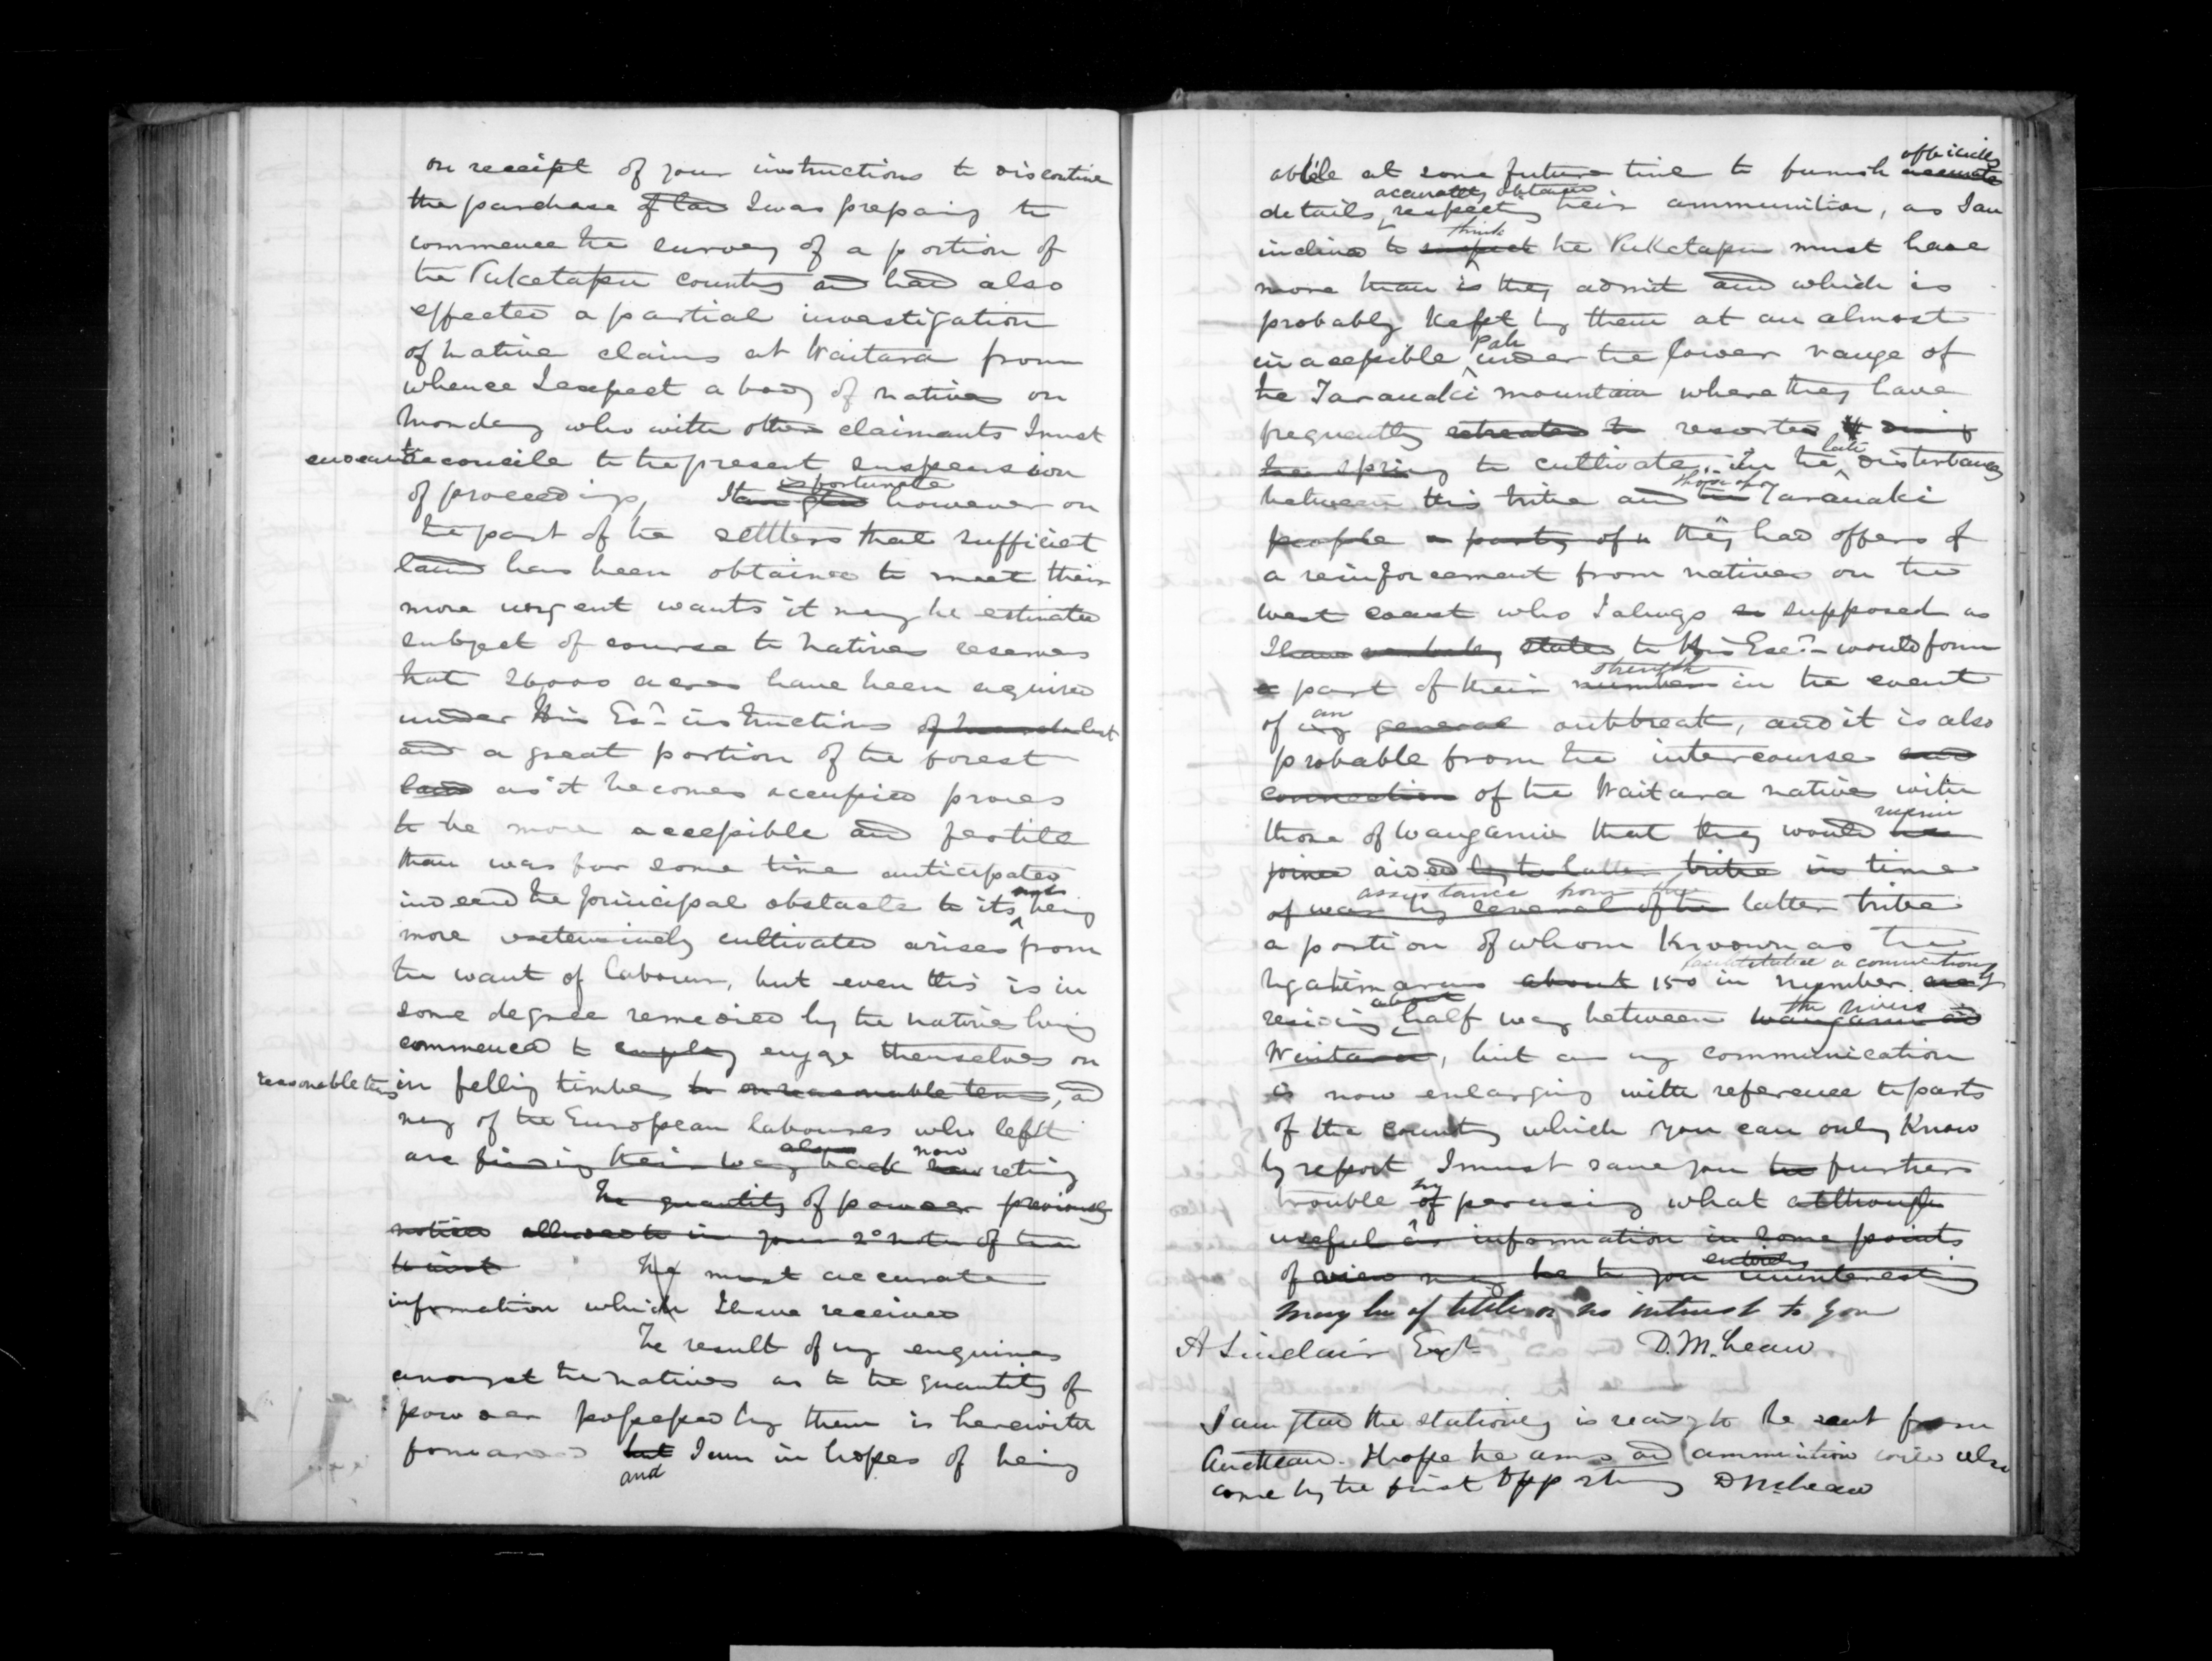 on receipt of your instructions to discontinue
the purchase of land I was preparing to
commence the survey of a portion of
the Puketapu country and had also
effected a partial investigation
of native claims at Waitara from
whence I expect a body of natives on
Monday who with other claimants I must
endeavour to reconcile to the present suspension
of proceedings, It is fortunate however on
the part of the settlers that sufficient
land has been obtained to meet their
more urgent wants it may be estimated
subject of course to Natives reserves
that 26000 acres have been aquired
under His Exy instructions
and a great portion of the forest
land as it becomes occupied proves
to be more accessible and fertile
than was for some time anticipated
indeed the principal obstacle to its not being
more extensively cultivated arises from
the want of labour, but even this is in
some degree remedied by the natives having
commenced to employ engage themselves on
reasonable terms in felling timber to on reasonable terms, and
many of the European labourers who left
are finding their way back also now reting
The quantity of powder previously
notice allowed to in your 2d note of the
The most accurate
information which I have received
The result of my enquiries
amongst the natives as to the quantity of
powder possessed by them is herewith
forwarded but and I am in hopes of being
able at some future time to furnish accurate
details accurately obtained respecting their ammunition, as I am
inclined to suspect think the Puketapu must have
more than is they admit and which is
probably kept by them at an almost
inaccessible Pah under the lower range of
the Taranaki mountain where they have
frequently retreated to resorted
the spring to cultivate. In the late disturbances
between this tribe and the those of Taranaki
people a party of they had offers of
a reinforcement from natives on the
west coast who I always so supposed as
I have verbally stated to His Excy would form
a part of their number strength in the event
of any an general outbreak, and it is also
probable from the intercourse and
connection of the Waitara natives with
those of Wanganui that they would receive
joined aided by the latter tribe in time
of war by several of the assistance from the latter tribe
a portion of whom known as the
Ngatimarus about 150 in number
residing about half way between Wanganui and the rivers
Waitara, but as my communication
is now enlarging with reference to parts
of the country which you can only know
by report I must save you the further
trouble of by perusing what although
useful as information in some points
of view may be to you entirely uninteresting
may be of little or no interest to you
A Sinclair Esqre D. McLean
I am glad the stationery is ready to be sent from
Auckland. I hope the arms and ammunition will also
come by the first opp rtunity D McLean